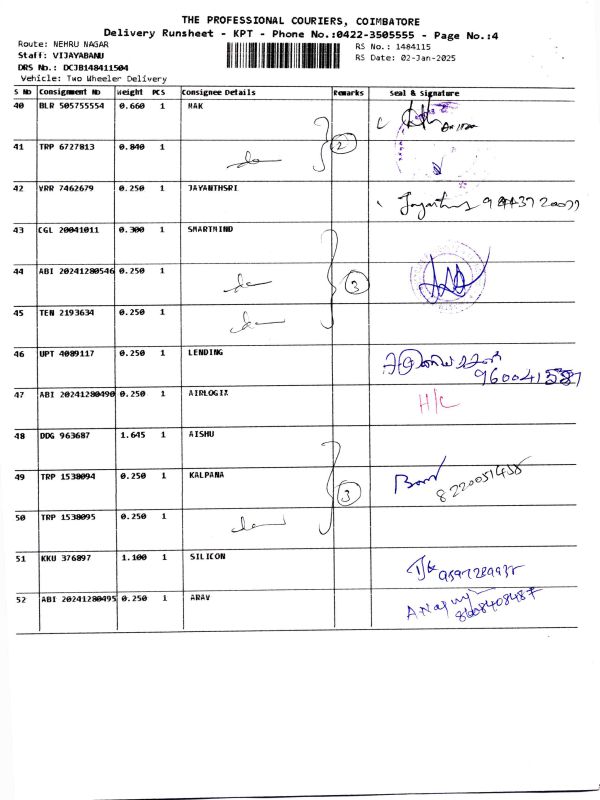 THE PROFESSIONAL COURIERS, COIMBATORE
Delivery Runsheet - KPT - Phone No.:0422-3505555 - Page No.:4
Route: NEHRU NAGAR
RS No.: 1484115
Staff: VIJAYABANU
RS Date: 02-Jan-2025
DRS No.: DCJB148411504
Vehicle: Two Wheeler Delivery
S No Consignment No Weight PCS Consignee Details Remarks Seal & Signature
40 BLR 505755554 0.660 1 MAK
41 TRP 6727813 0.840 1 2
42 VRR 7462679 0.250 1 JAYANTHSRI
43 CGL 20041011 0.300 1 SMARTMIND
44 ABI 20241280546 0.250 1 3
45 TEN 2193634 0.250 1
46 UPT 4089117 0.250 1 LENDING
47 ABI 20241280490 0.250 1 AIRLOGIX H/C
48 DDG 963687 1.645 1 AISHU
49 TRP 1538094 0.250 1 KALPANA 3 8220051458
50 TRP 1538095 0.250 1
51 KKU 376897 1.100 1 SILICON
52 ABI 20241280495 0.250 1 ARAV 8608408487